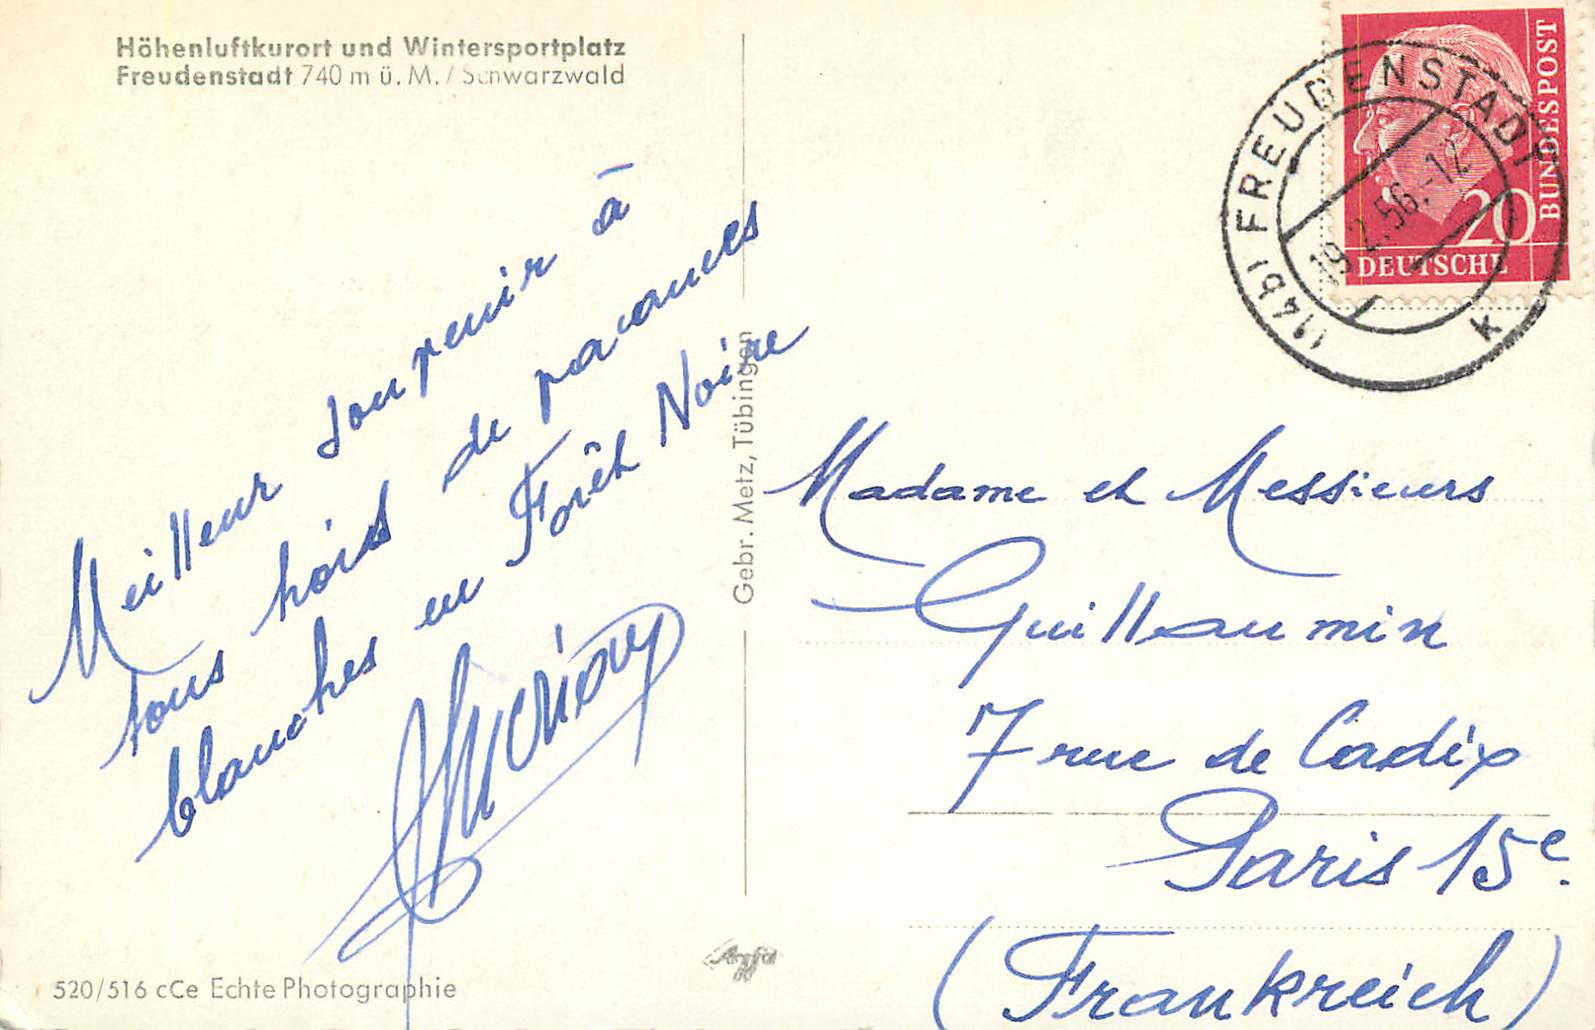 Höhenluftkurort und Wintersportplatz
Freudenstadt 740 m ü. M. / Schwarzwald
Meilleur souvenir à
tous trois de vacances
blanches en Forêt Noire
520/516 cCe Echte Photographie
Gebr. Metz, Tübingen
DEUTSCHE
BUNDESPOST
20
(14b) FREUDENSTADT
19.2.56.-12
k
Madame et Messieurs
Guillaumin
7 rue de Cadix
Paris 15e.
(Frankreich)